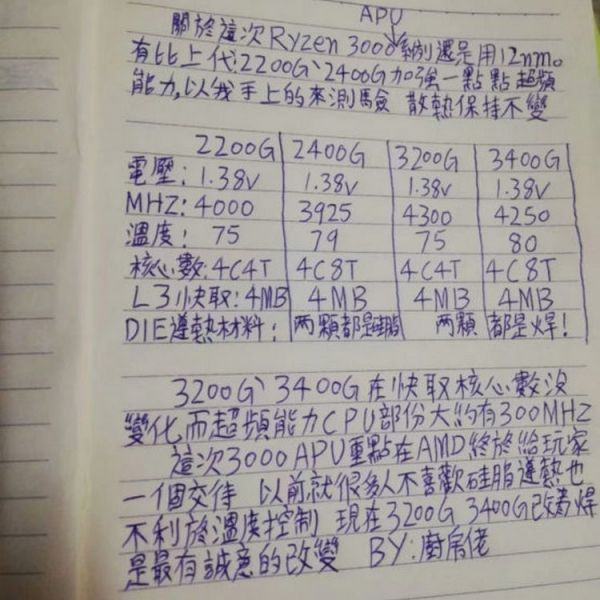 APU
關於這次Ryzen 3000系列還是用12nm。
有比上代2200G、2400G加強一點點超頻
能力,以我手上的來測驗 散熱保持不變
2200G 2400G 3200G 3400G
電壓:1.38V 1.38V 1.38V 1.38V
MHZ:4000 3925 4300 4250
溫度:75 79 75 80
核心數:4C4T 4C8T 4C4T 4C8T
L3快取:4MB 4MB 4MB 4MB
DIE導熱材料: 两顆都是硅脂 两顆 都是焊!
3200G、3400G在快取核心數沒
變化而超頻能力CPU部份大約有300MHZ
這次3000APU重點在AMD終於給玩家
一個交待 以前就很多人不喜歡硅脂導熱也
不利於溫度控制 現在3200G 3400G改為焊
是最有誠意的改變 BY:廚房佬